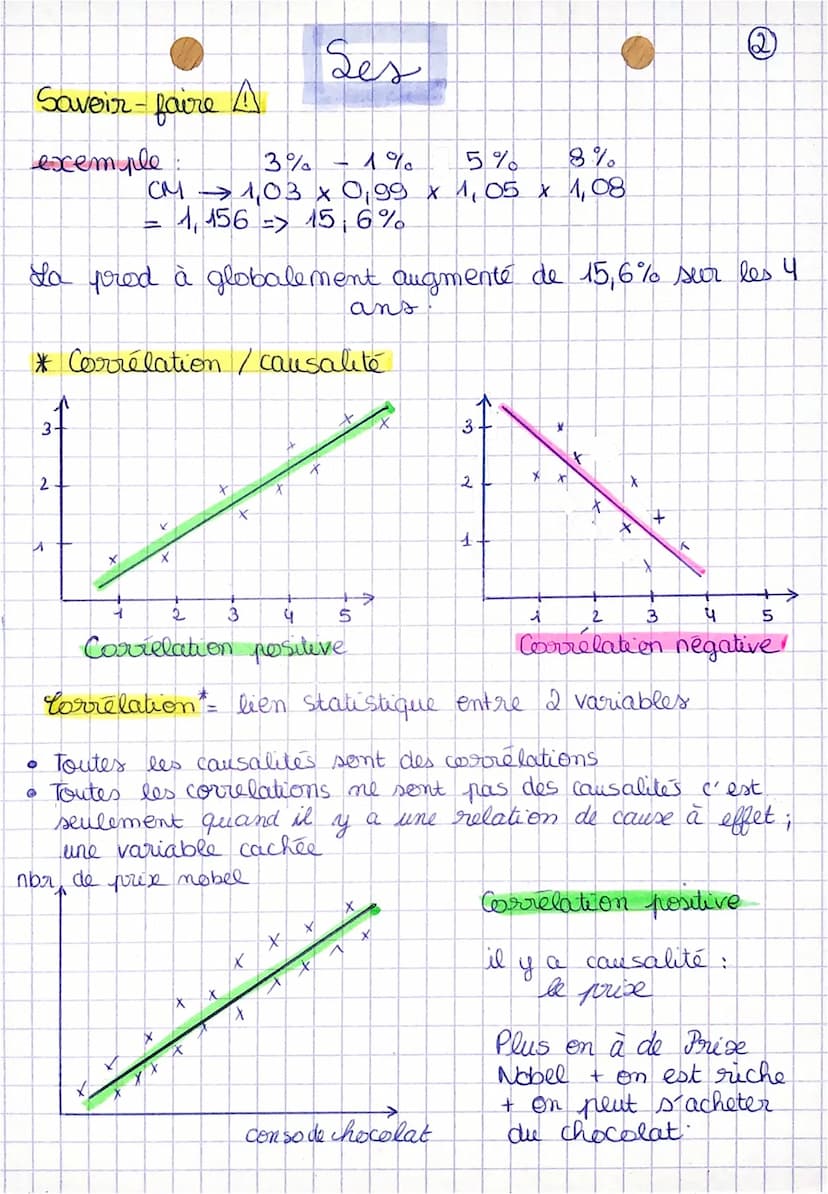 Ses
②
Savoir-faire ⚠
exemple : 3% - 1% 5% 8%
CM → 1,03 x 0,99 x 1,05 x 1,08
= 1,156 => 15,6%
La prod à globalement augmenté de 15,6% sur les 4
ans.
* Corrélation / causalité
3
2
1
1 2 3 4 5
Correlation positive
3
2
1
1 2 3 4 5
Corrélation négative
Corrélation* = lien statistique entre 2 variables
• Toutes les causalités sont des corrélations
• Toutes les correlations ne sont pas des causalités c'est
seulement quand il y a une relation de cause à effet ;
une variable cachée
nbr de prix nobel
conso de chocolat
Corrélation positive
il y a causalité :
le prixe
Plus on à de Prixe
Nobel + on est riche
+ on peut s'acheter
du chocolat.